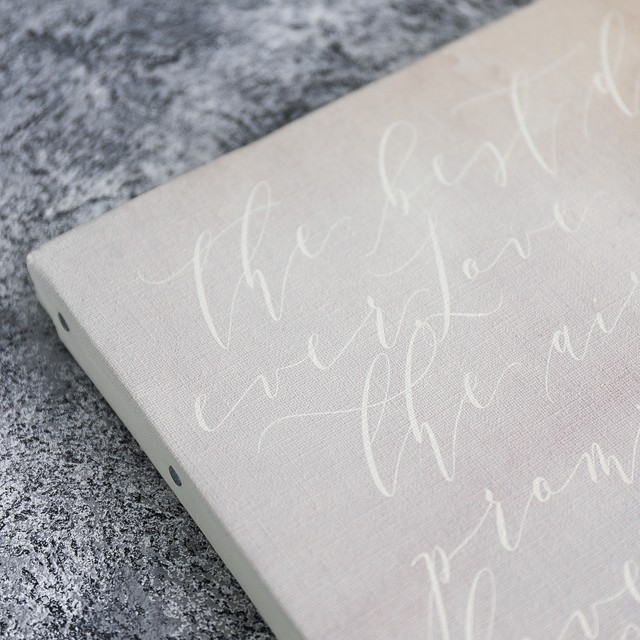 the best d
ever Love
the air
prom
love